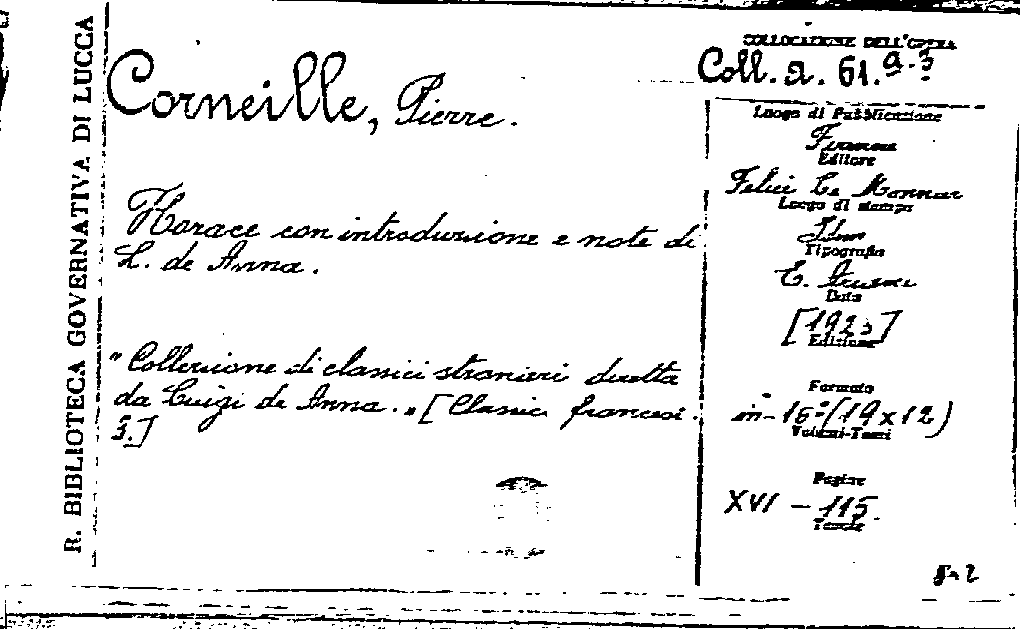 R. BIBLIOTECA GOVERNATIVA DI LUCCA
Corneille, Pierre.
Horace con introduzione e note di
L. de Anna.
"Collezione di classici stranieri diretta
da Luigi de Anna." [Classici francesi.
3.]
COLLOCAZIONE DELL'OPERA
Coll. a. 61. a-3
Luogo di Pubblicazione
Firenze
Editore
Felice Le Monnier
Luogo di stampa
Idem
Tipografia
E. Ariani
Data
[1923]
Edizione
Formato
in-16°(19x12)
Volumi-Tomi
Pagine
XVI - 115.
Tavole